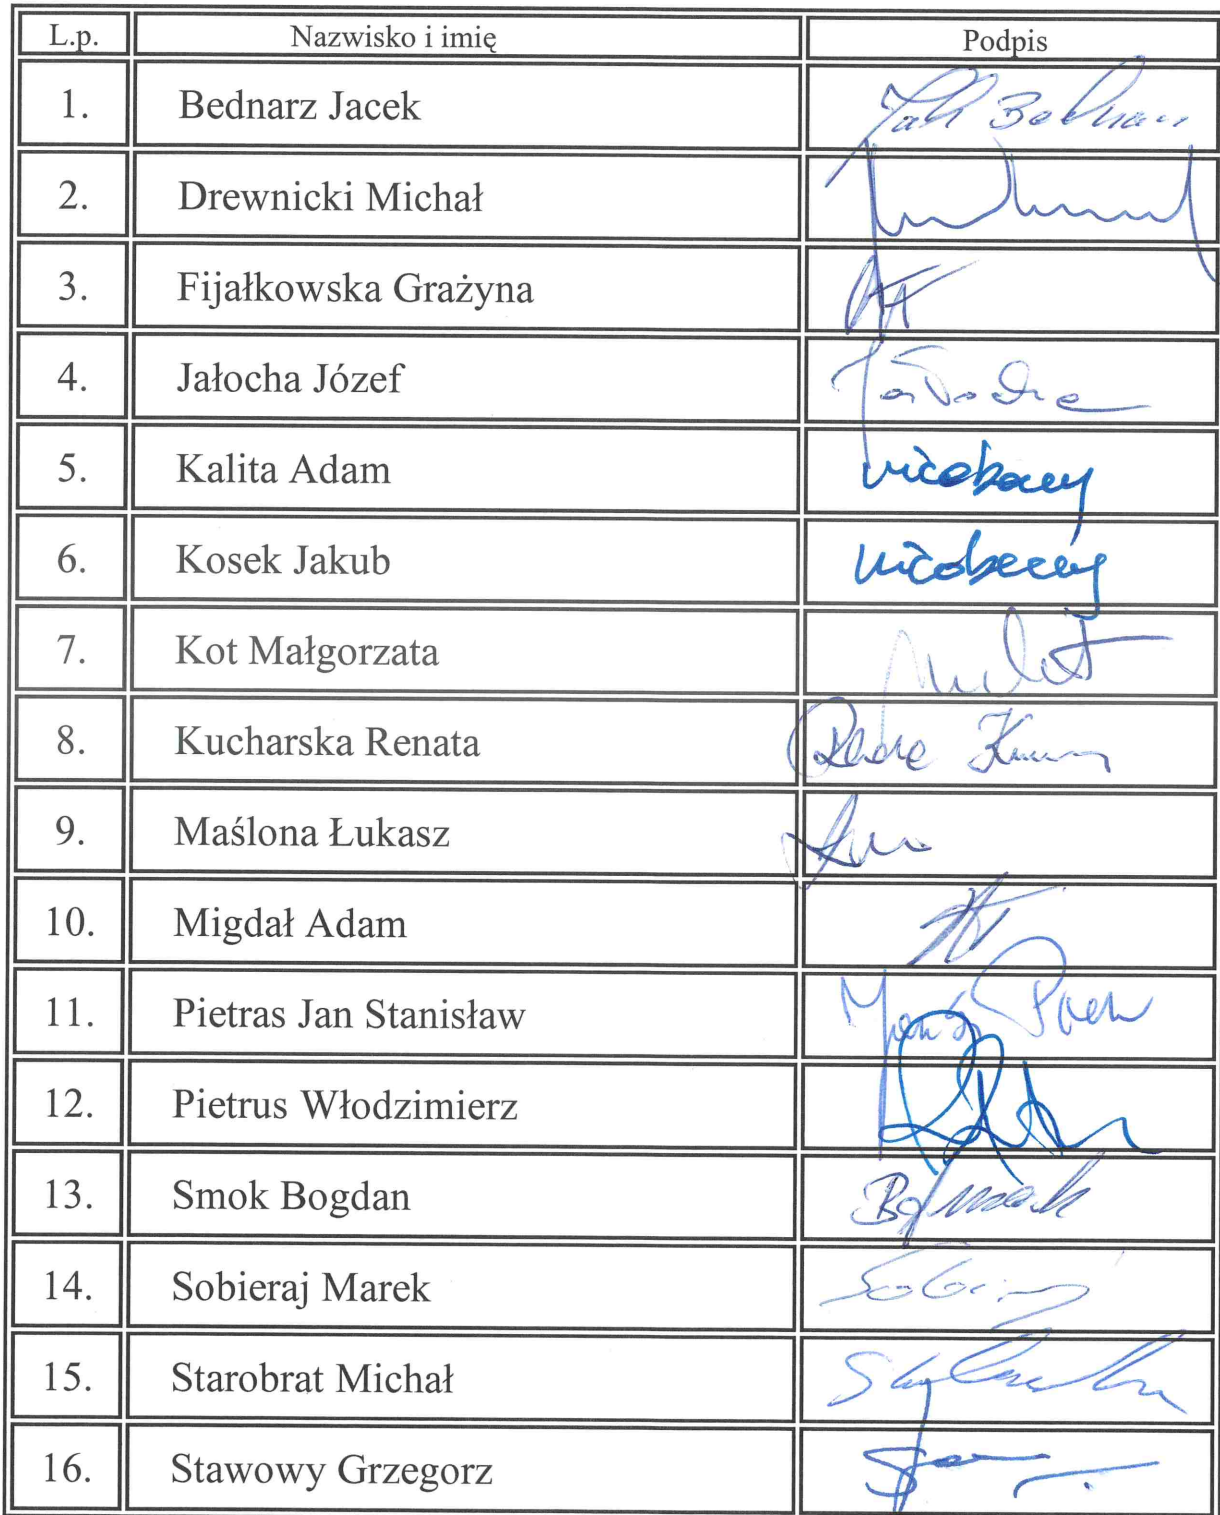 L.p. Nazwisko i imię Podpis
1. Bednarz Jacek
2. Drewnicki Michał
3. Fijałkowska Grażyna
4. Jałocha Józef Jałocha
5. Kalita Adam nieobecny
6. Kosek Jakub nieobecny
7. Kot Małgorzata
8. Kucharska Renata
9. Maślona Łukasz
10. Migdał Adam
11. Pietras Jan Stanisław
12. Pietrus Włodzimierz
13. Smok Bogdan
14. Sobieraj Marek
15. Starobrat Michał
16. Stawowy Grzegorz